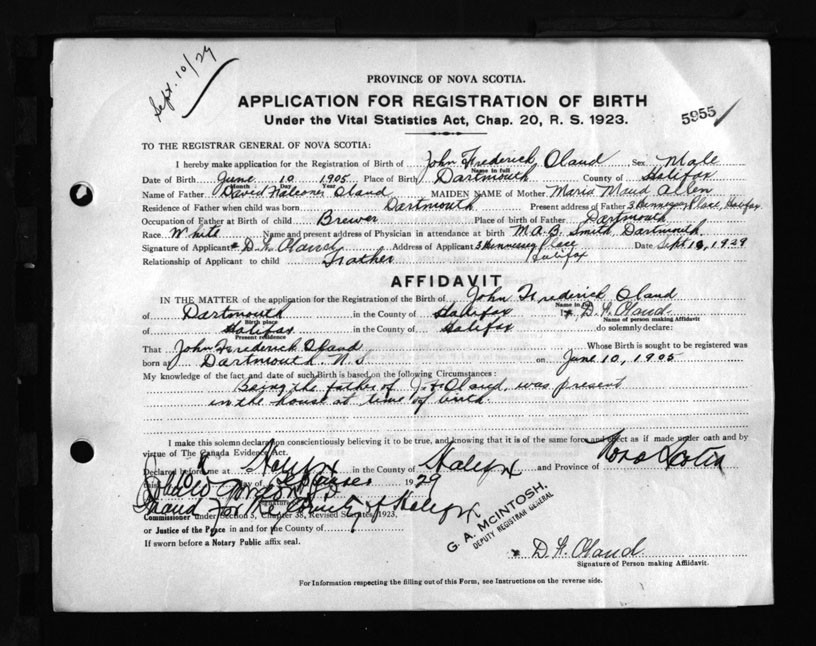 Sept. 10/29
PROVINCE OF NOVA SCOTIA.
APPLICATION FOR REGISTRATION OF BIRTH
Under the Vital Statistics Act, Chap. 20, R. S. 1923.
5955
TO THE REGISTRAR GENERAL OF NOVA SCOTIA:
I hereby make application for the Registration of Birth of John Frederick Oland Sex Male
Name in full
Date of Birth June 10 1905 Place of Birth Dartmouth County of Halifax
Month Day Year
Name of Father David Falconer Oland MAIDEN NAME of Mother Maria Maud Allen
Residence of Father when child was born Dartmouth Present address of Father 3 Hennessey Place, Halifax
Occupation of Father at Birth of child Brewer Place of birth of Father Dartmouth
Race White Name and present address of Physician in attendance at birth M.A.B. Smith, Dartmouth.
Signature of Applicant D. F. Oland Address of Applicant 3 Hennessey Place Halifax Date Sept 1929
Relationship of Applicant to child Father
AFFIDAVIT
IN THE MATTER of the application for the Registration of the Birth of John Frederick Oland
Name in full
of Dartmouth in the County of Halifax I, D. F. Oland
Birth place Name of person making Affidavit
of Halifax in the County of Halifax do solemnly declare:
Present residence
That John Frederick Oland Whose Birth is sought to be registered was
born at Dartmouth. N.S. on June 10, 1905
My knowledge of the fact and date of such Birth is based on the following Circumstances:
Being the father of J. F. Oland, was present
in the house at time of birth
I make this solemn declaration conscientiously believing it to be true, and knowing that it is of the same force and effect as if made under oath and by
virtue of The Canada Evidence Act.
Declared before me at Halifax in the County of Halifax and Province of Nova Scotia
this day of 1929
in and for the County of Halifax
Commissioner under Section 3, Chapter 38, Revised Statutes, 1923.
or Justice of the Peace in and for the County of
If sworn before a Notary Public affix seal.
G. A. McINTOSH,
DEPUTY REGISTRAR GENERAL
D. F. Oland
Signature of Person making Affidavit.
For Information respecting the filling out of this Form, see Instructions on the reverse side.